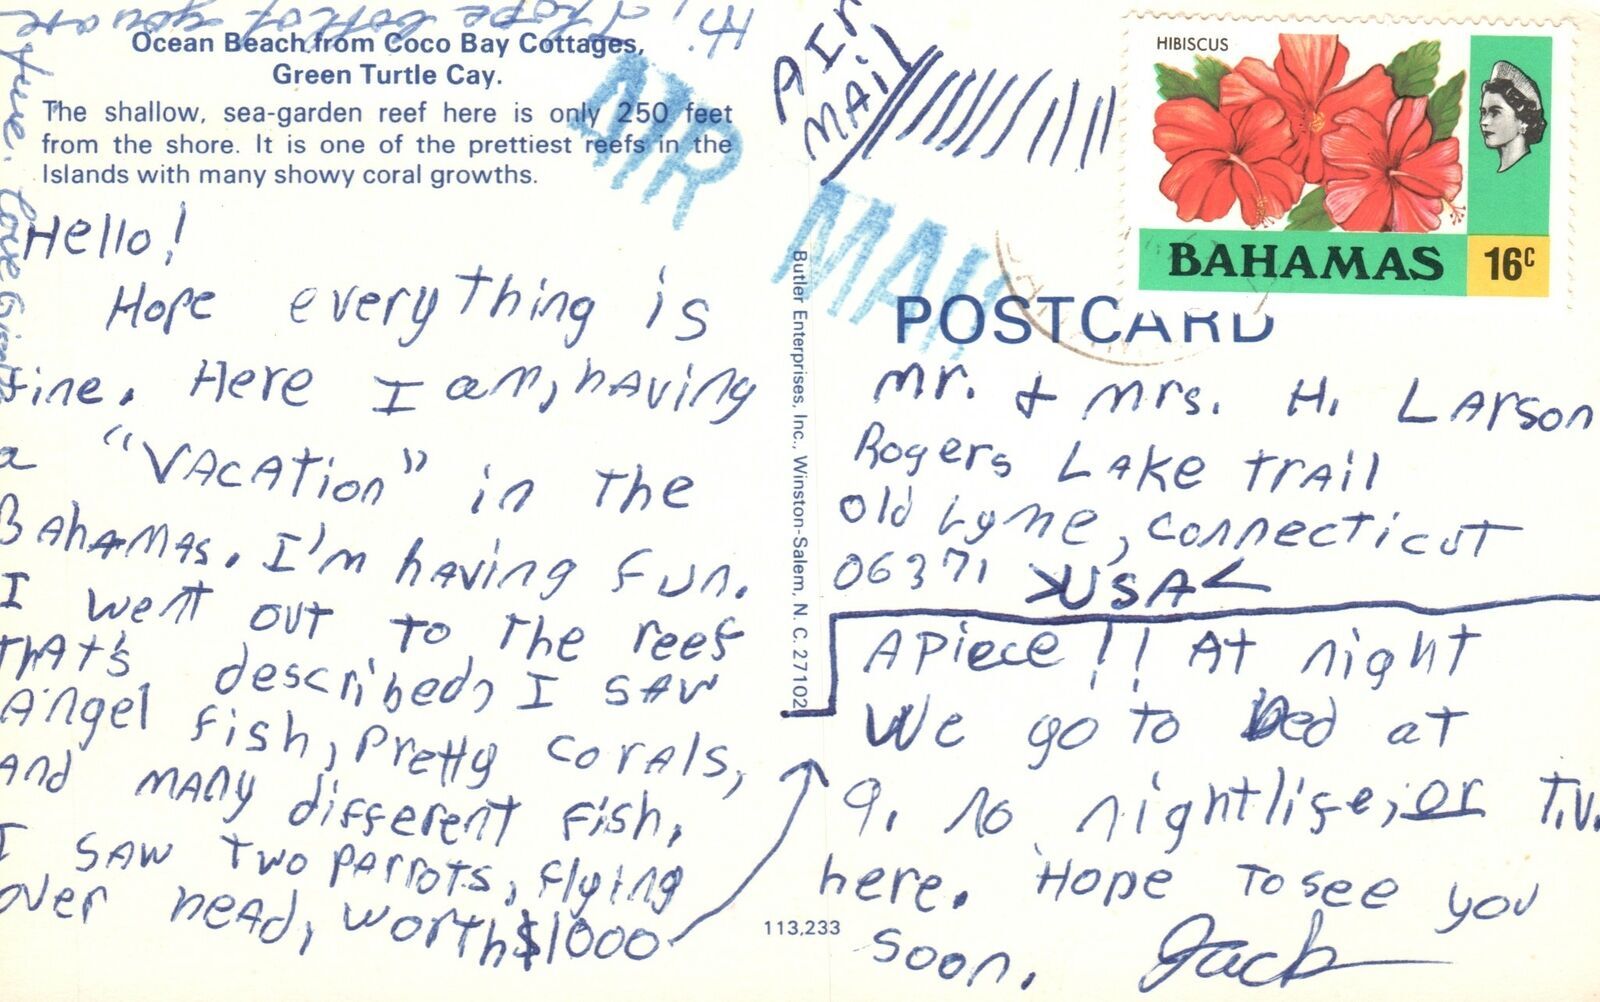 Hi, I hope both of you are
fine. Love
Ocean Beach from Coco Bay Cottages,
Green Turtle Cay.
The shallow, sea-garden reef here is only 250 feet
from the shore. It is one of the prettiest reefs in the
Islands with many showy coral growths.
AIR MAIL
Hello!
Hope everything is
fine. Here I am, having
a "Vacation" in the
Bahamas. I'm having fun.
I went out to the reef
that's described, I saw
Angel fish, pretty corals,
and many different fish.
I saw two parrots, flying
over head, worth $1000
Butler Enterprises, Inc., Winston-Salem, N. C. 27102
113,233
Air
Mail
HIBISCUS
BAHAMAS 16c
POSTCARD
Mr. & Mrs. H. Larson
Rogers Lake Trail
Old Lyme, Connecticut
06371 >USA<
Apiece!! At night
We go to bed at
9. No nightlife, or T.V.
here. Hope to see you
soon. Jack